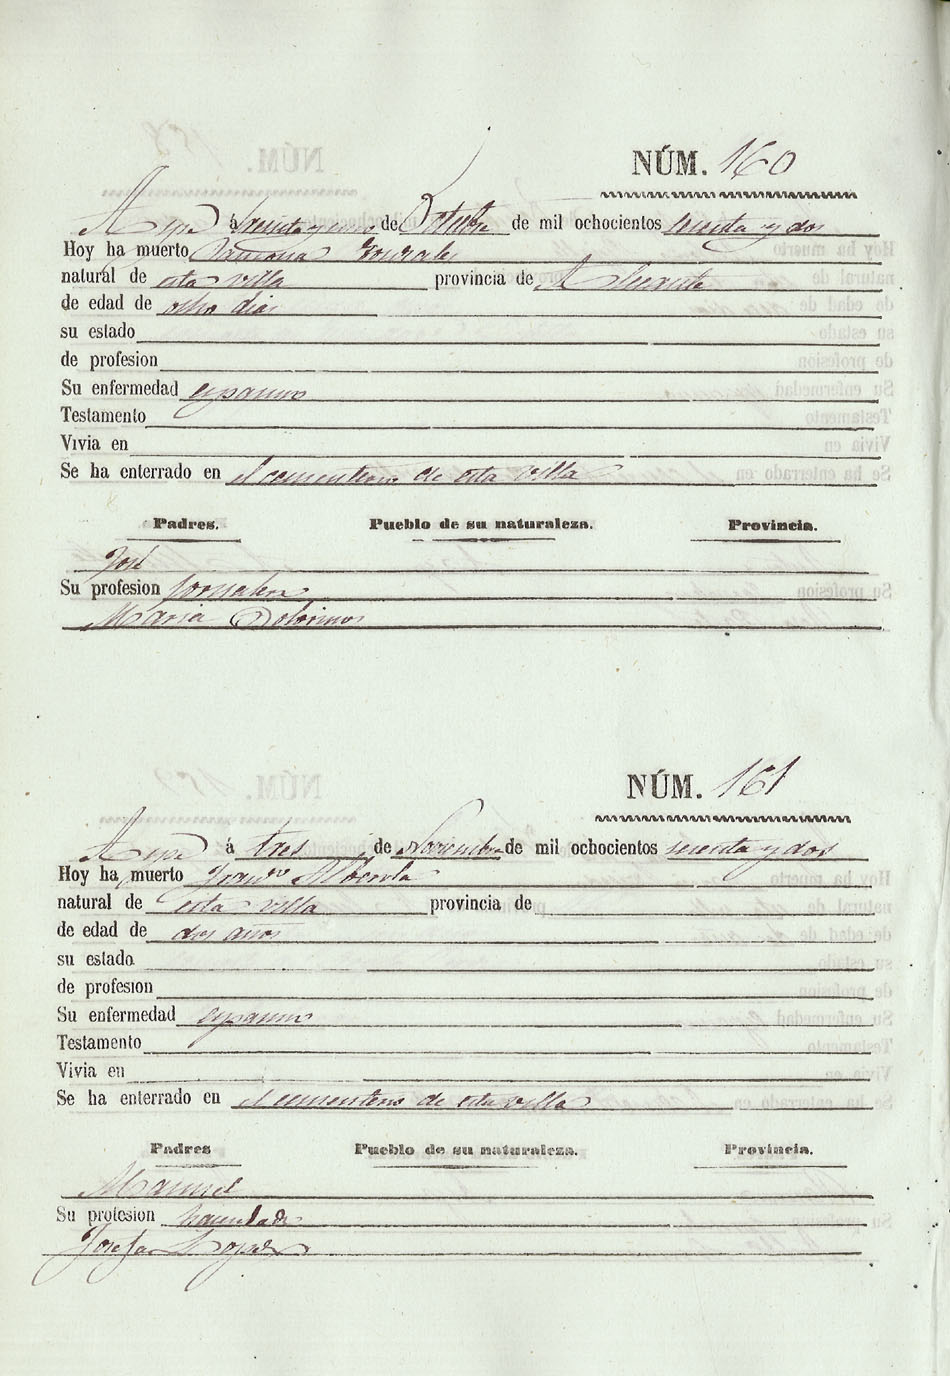 NÚM. 160
Aspe á treinta y uno de Octubre de mil ochocientos sesenta y dos
Hoy ha muerto Ramona Gonzales
natural de esta villa provincia de Alicante
de edad de ocho dias
su estado
de profesion
Su enfermedad espasmo
Testamento
Vivia en
Se ha enterrado en el cementerio de esta villa
Padres. Pueblo de su naturaleza. Provincia.
José
Su profesion Jornalero
Maria
NÚM. 161
Aspe á tres de Noviembre de mil ochocientos sesenta y dos
Hoy ha muerto Franco
natural de esta villa provincia de
de edad de dos años
su estado
de profesion
Su enfermedad espasmo
Testamento
Vivia en
Se ha enterrado en el cementerio de esta villa
Padres Pueblo de su naturaleza. Provincia.
Manuel
Su profesion hacendado
Josefa Lopez